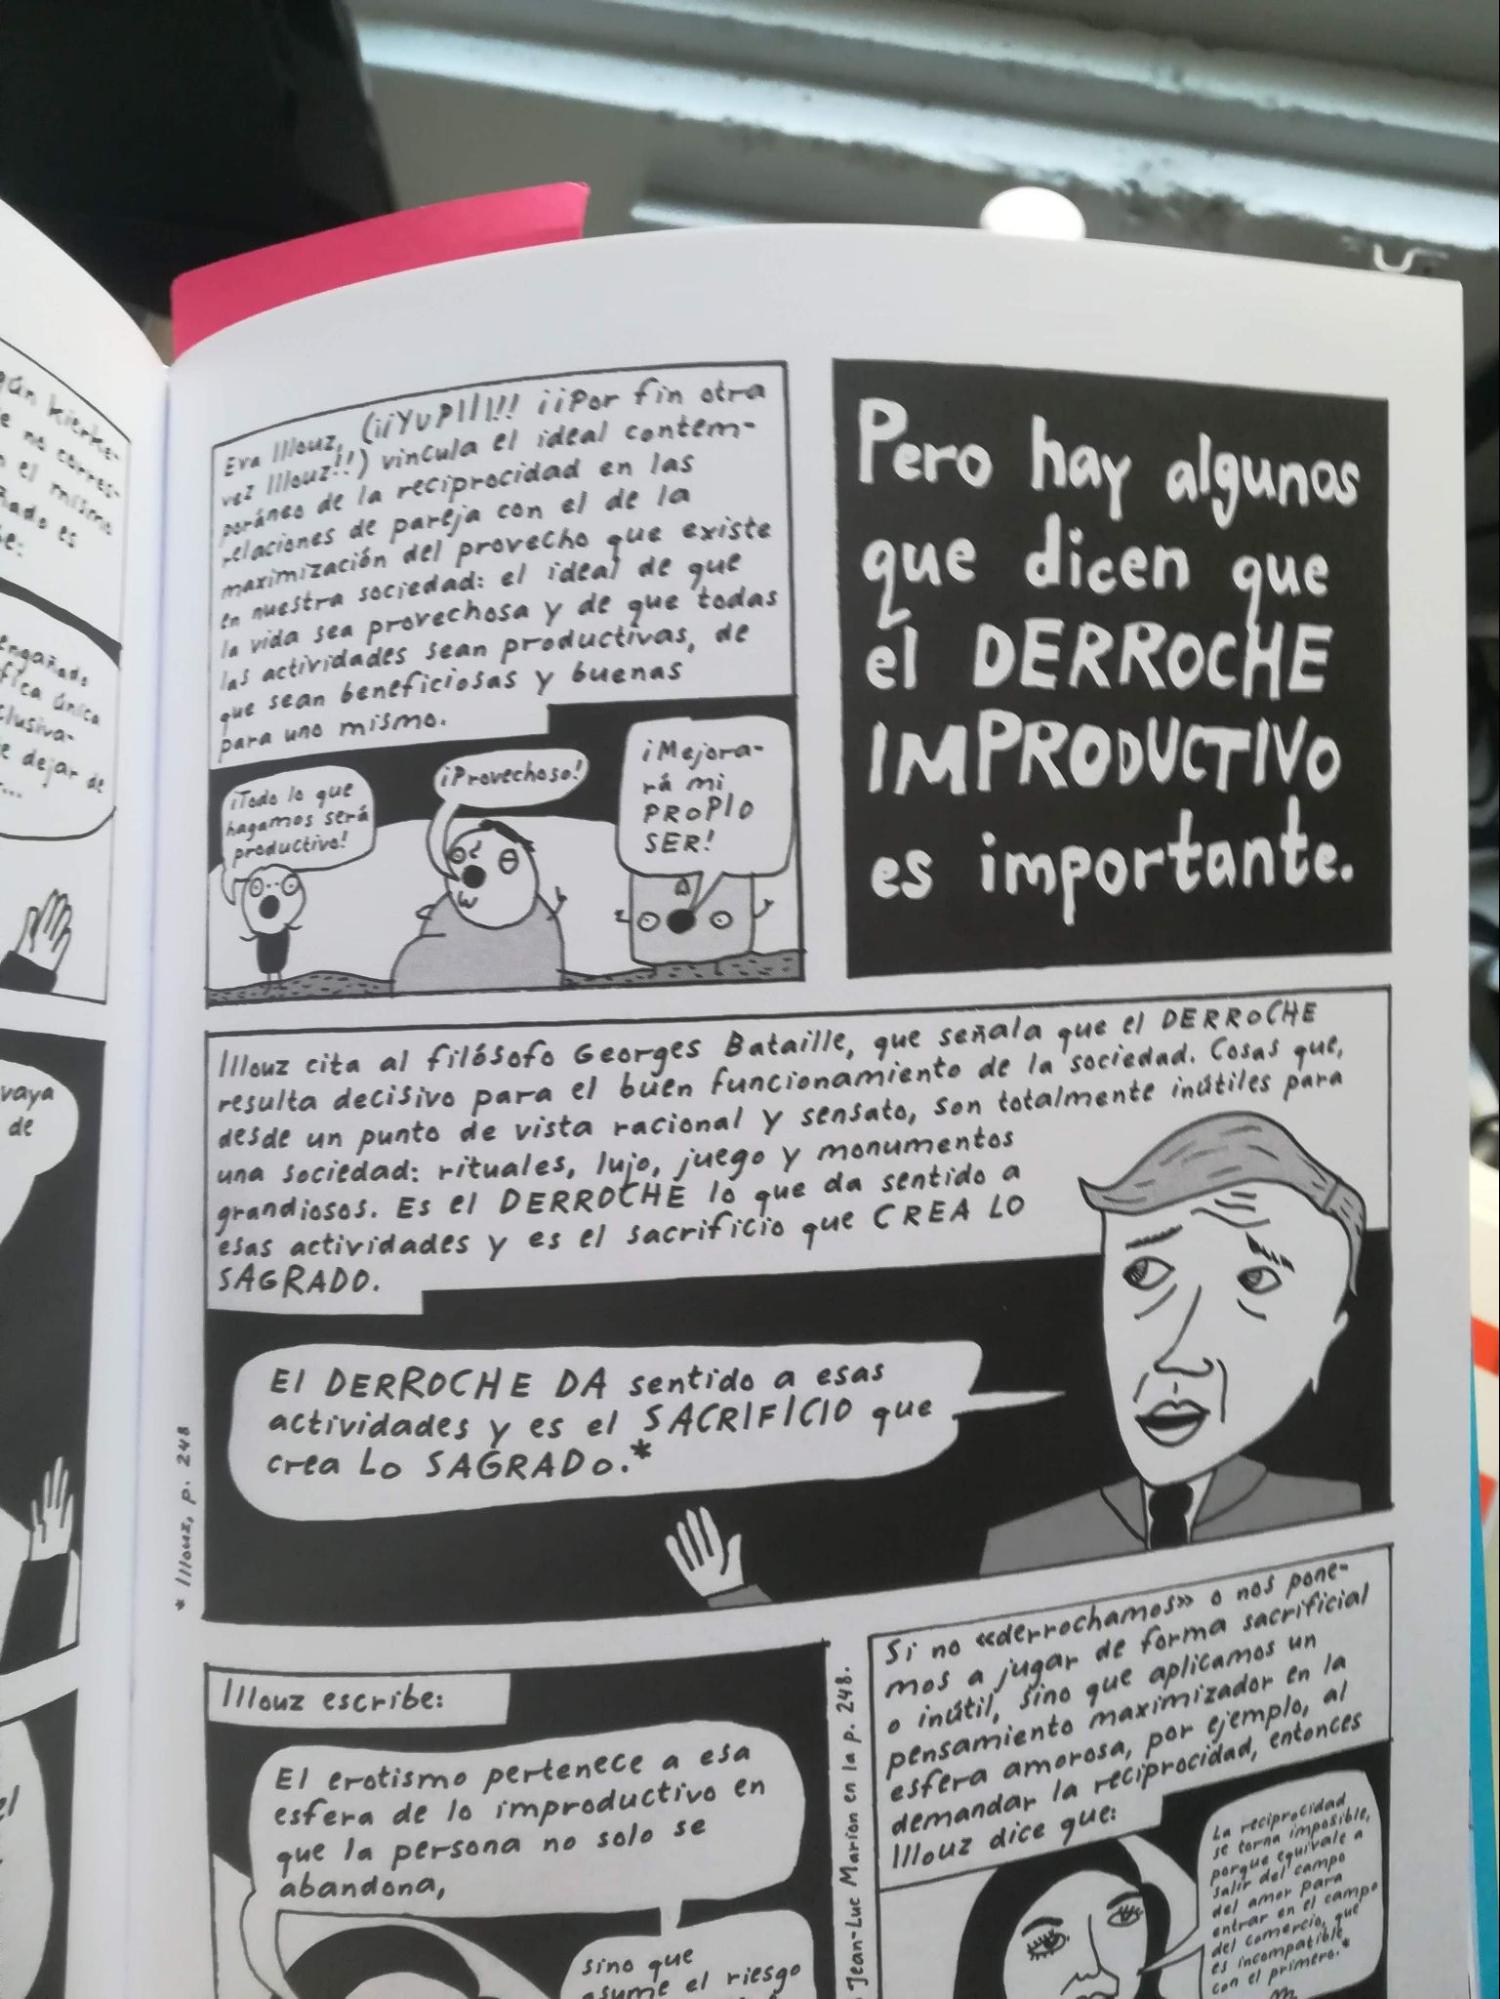 gún Kierke-
e no corres-
n el mismo
ñado es
be:
engañado
fica única
clusiva-
e dejar de
r...
vaya
de
el
Eva Illouz, (¡¡YUPIII!!! ¡¡Por fin otra
vez Illouz!!) vincula el ideal contem-
poráneo de la reciprocidad en las
relaciones de pareja con el de la
maximización del provecho que existe
en nuestra sociedad: el ideal de que
la vida sea provechosa y de que todas
las actividades sean productivas, de
que sean beneficiosas y buenas
para uno mismo.
¡Todo lo que
hagamos será
productivo!
¡Provechoso!
¡Mejora-
rá mi
PROPIO
SER!
Pero hay algunos
que dicen que
el DERROCHE
IMPRODUCTIVO
es importante.
Illouz cita al filósofo Georges Bataille, que señala que el DERROCHE
resulta decisivo para el buen funcionamiento de la sociedad. Cosas que,
desde un punto de vista racional y sensato, son totalmente inútiles para
una sociedad: rituales, lujo, juego y monumentos
grandiosos. Es el DERROCHE lo que da sentido a
esas actividades y es el sacrificio que CREA LO
SAGRADO.
El DERROCHE DA sentido a esas
actividades y es el SACRIFICIO que
crea LO SAGRADO.*
* Illouz, p. 248
Illouz escribe:
El erotismo pertenece a esa
esfera de lo improductivo en
que la persona no solo se
abandona,
sino que
asume el riesgo
Jean-Luc Marion en la p. 248.
Si no «derrochamos» o nos pone-
mos a jugar de forma sacrificial
o inútil, sino que aplicamos un
pensamiento maximizador en la
esfera amorosa, por ejemplo, al
demandar la reciprocidad, entonces
Illouz dice que:
La reciprocidad
se torna imposible,
porque equivale a
salir del campo
del amor para
entrar en el campo
del comercio, que
es incompatible
con el primero.*